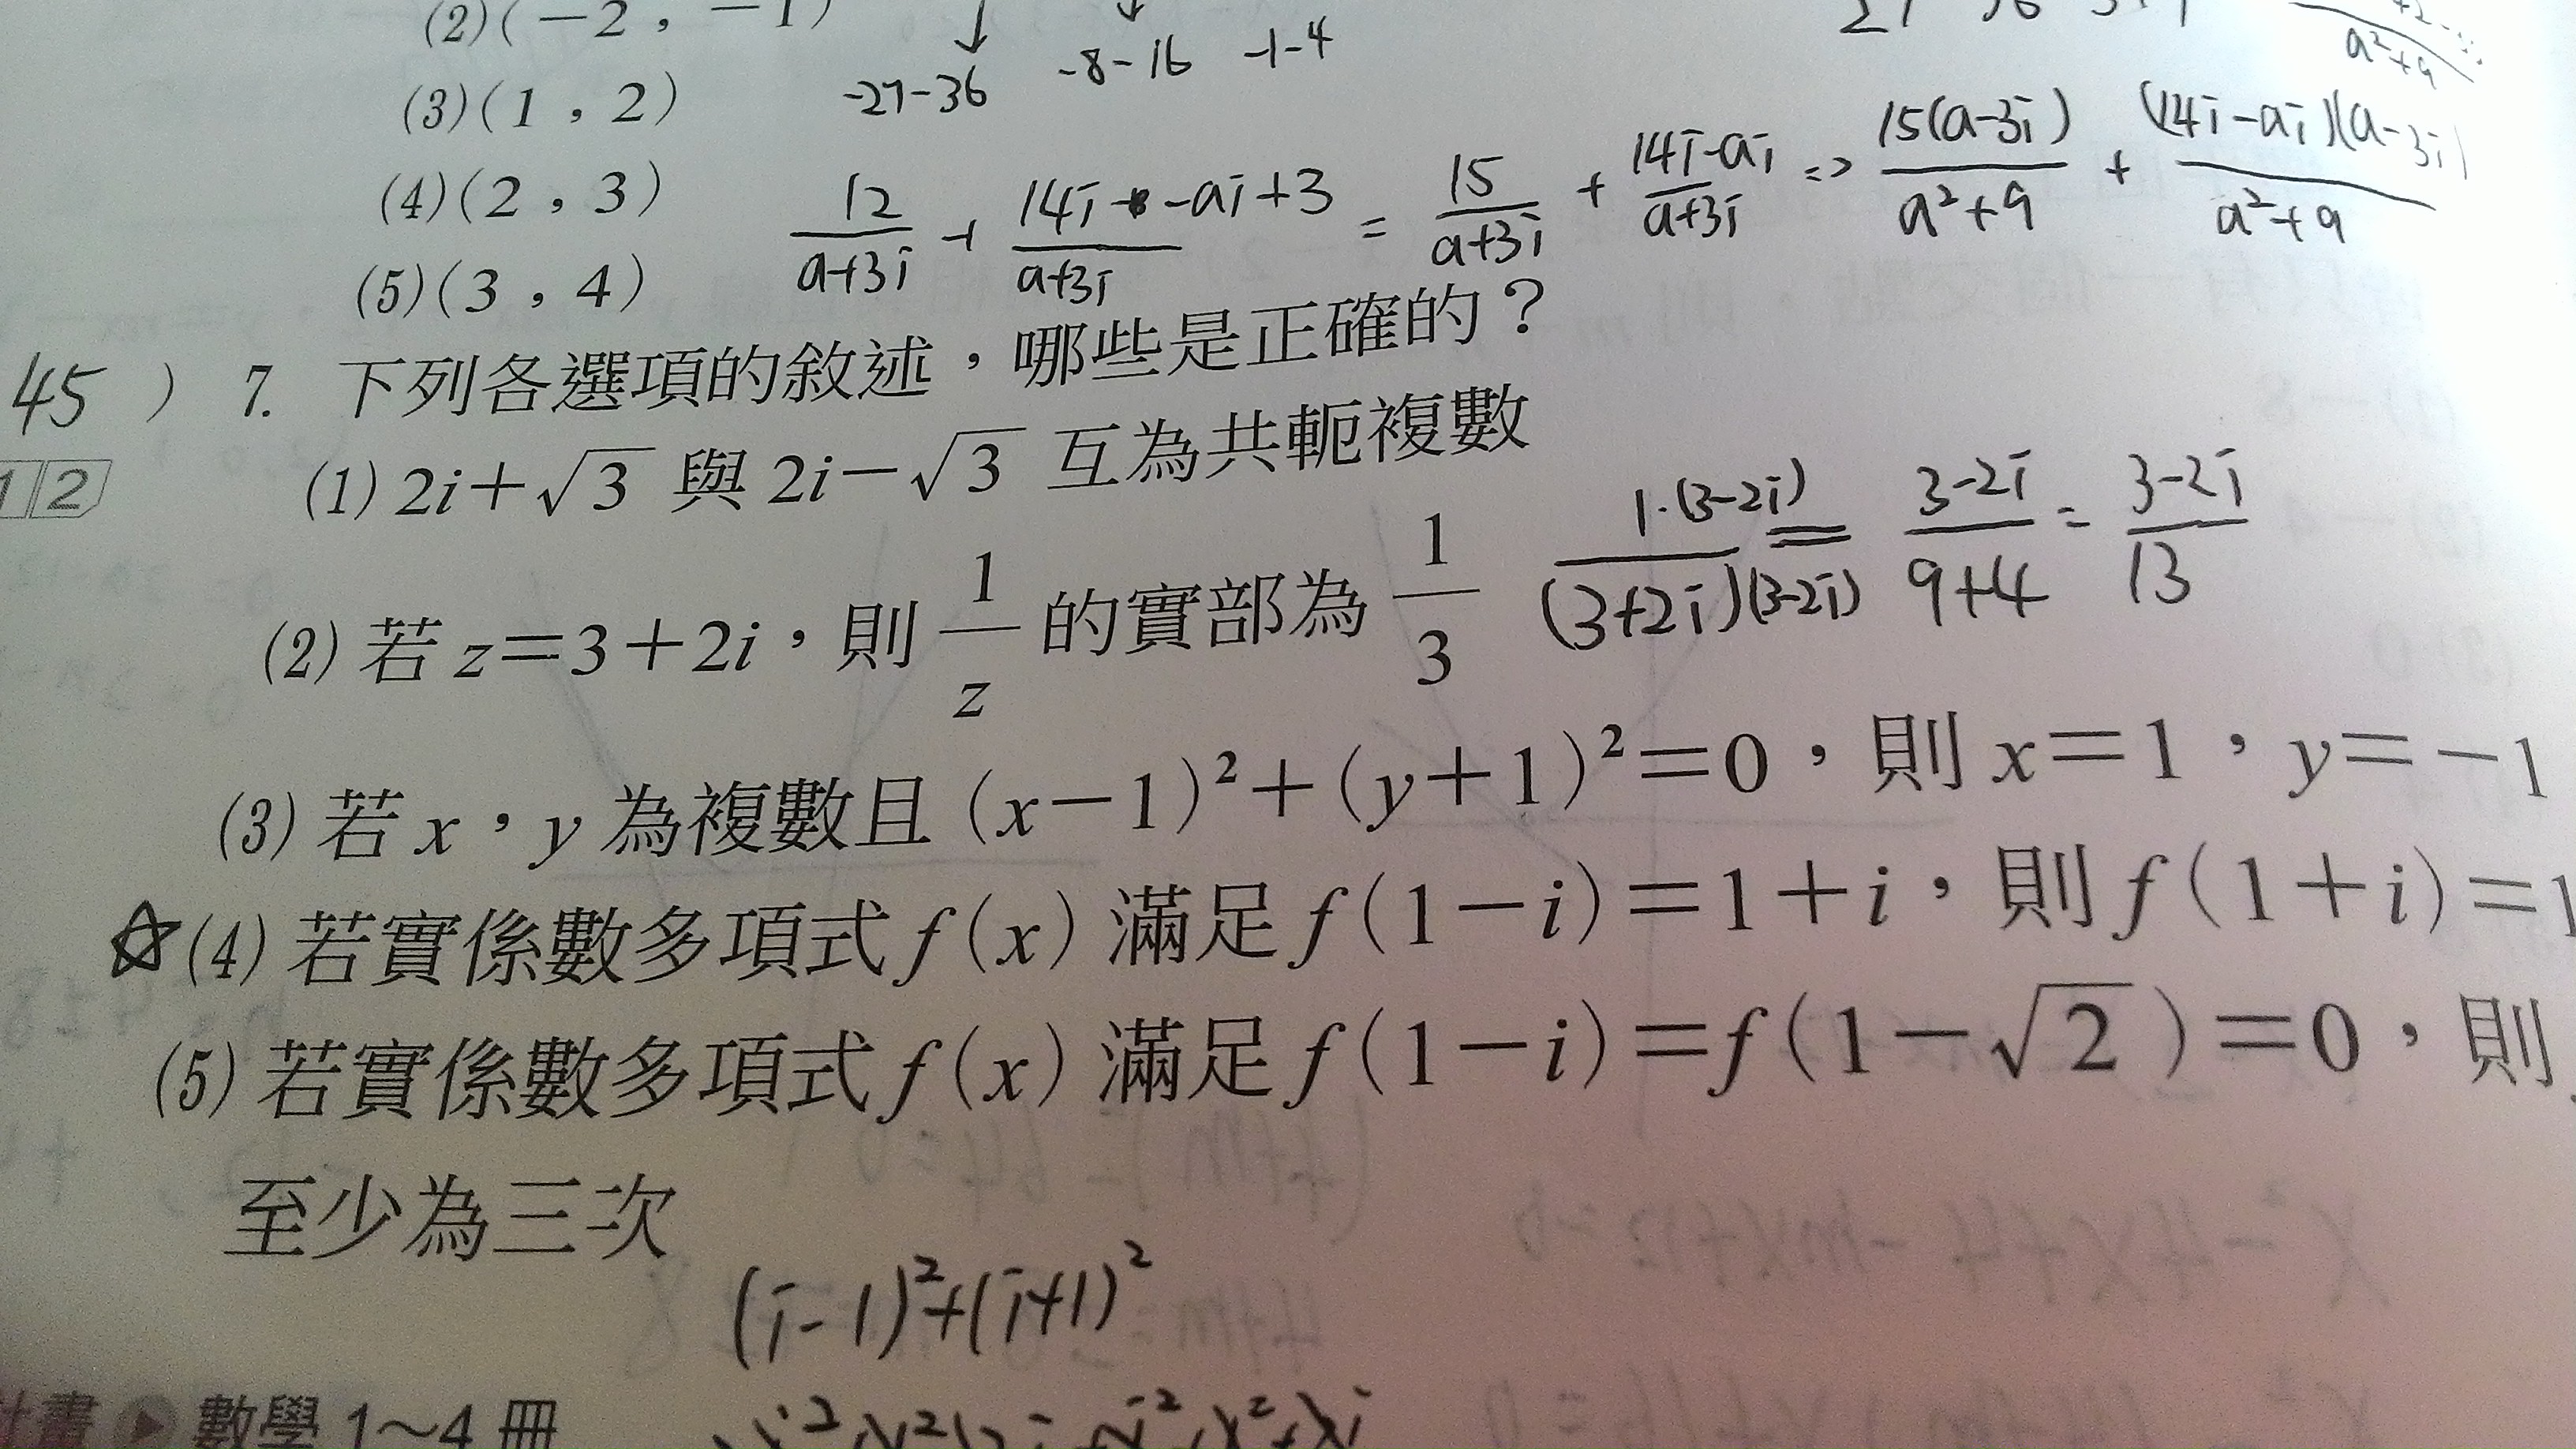 (2)(−2，−1)
-27-36 -8-16 -1-4
(3)(1，2)
(4)(2，3)
(5)(3，4)
12/(a+3i) + (14i - ai+3)/(a+3i) = 15/(a+3i) + (14i-ai)/(a+3i) => 15(a-3i)/(a²+9) + (14i-ai)(a-3i)/(a²+9)
a²+9
45 ) 7. 下列各選項的敘述，哪些是正確的？
12
(1) 2i+√3 與 2i−√3 互為共軛複數
(2) 若 z=3+2i，則 1/z 的實部為 1/3
1·(3-2i)/(3+2i)(3-2i) = (3-2i)/(9+4) = (3-2i)/13
(3) 若 x，y 為複數且 (x−1)²+(y+1)²=0，則 x=1，y=−1
☆(4) 若實係數多項式 f(x) 滿足 f(1−i)=1+i，則 f(1+i)=1
(5) 若實係數多項式 f(x) 滿足 f(1−i)=f(1−√2)=0，則
至少為三次
(i-1)²+(i+1)²
畫 ▶ 數學 1～4 冊